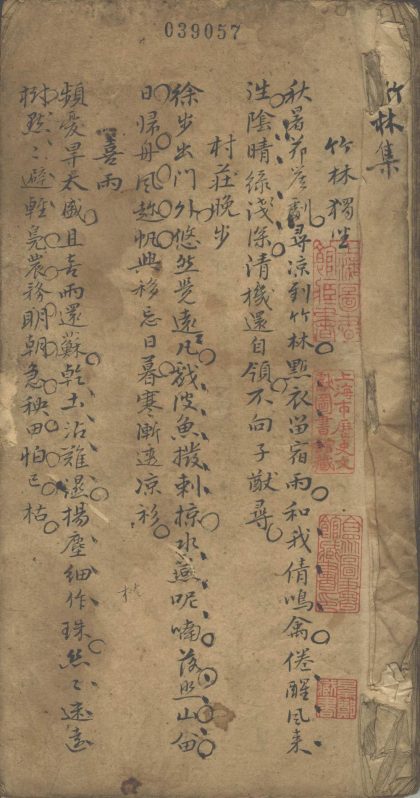 039057
竹林集
竹林獨坐
秋暑劇尋涼到竹林點衣留宿雨和我倩鳴禽倦醒風來
往陰晴綠淺深清機還自領不向子猷尋
村莊晚步
徐步出門外悠然覺遠凡戲波魚撥剌掠水燕呢喃落照山留
日歸舟風趁帆興移忘日暮寒漸透涼衫
喜雨
頻憂旱太盛且喜雨還蘇乾土沾難濕揚塵細作珠絲〻迷遠
樹點〻避輕鳧農務明朝急秧田怕已枯
上海圖書館藏書
上海市歷史文獻圖書館藏